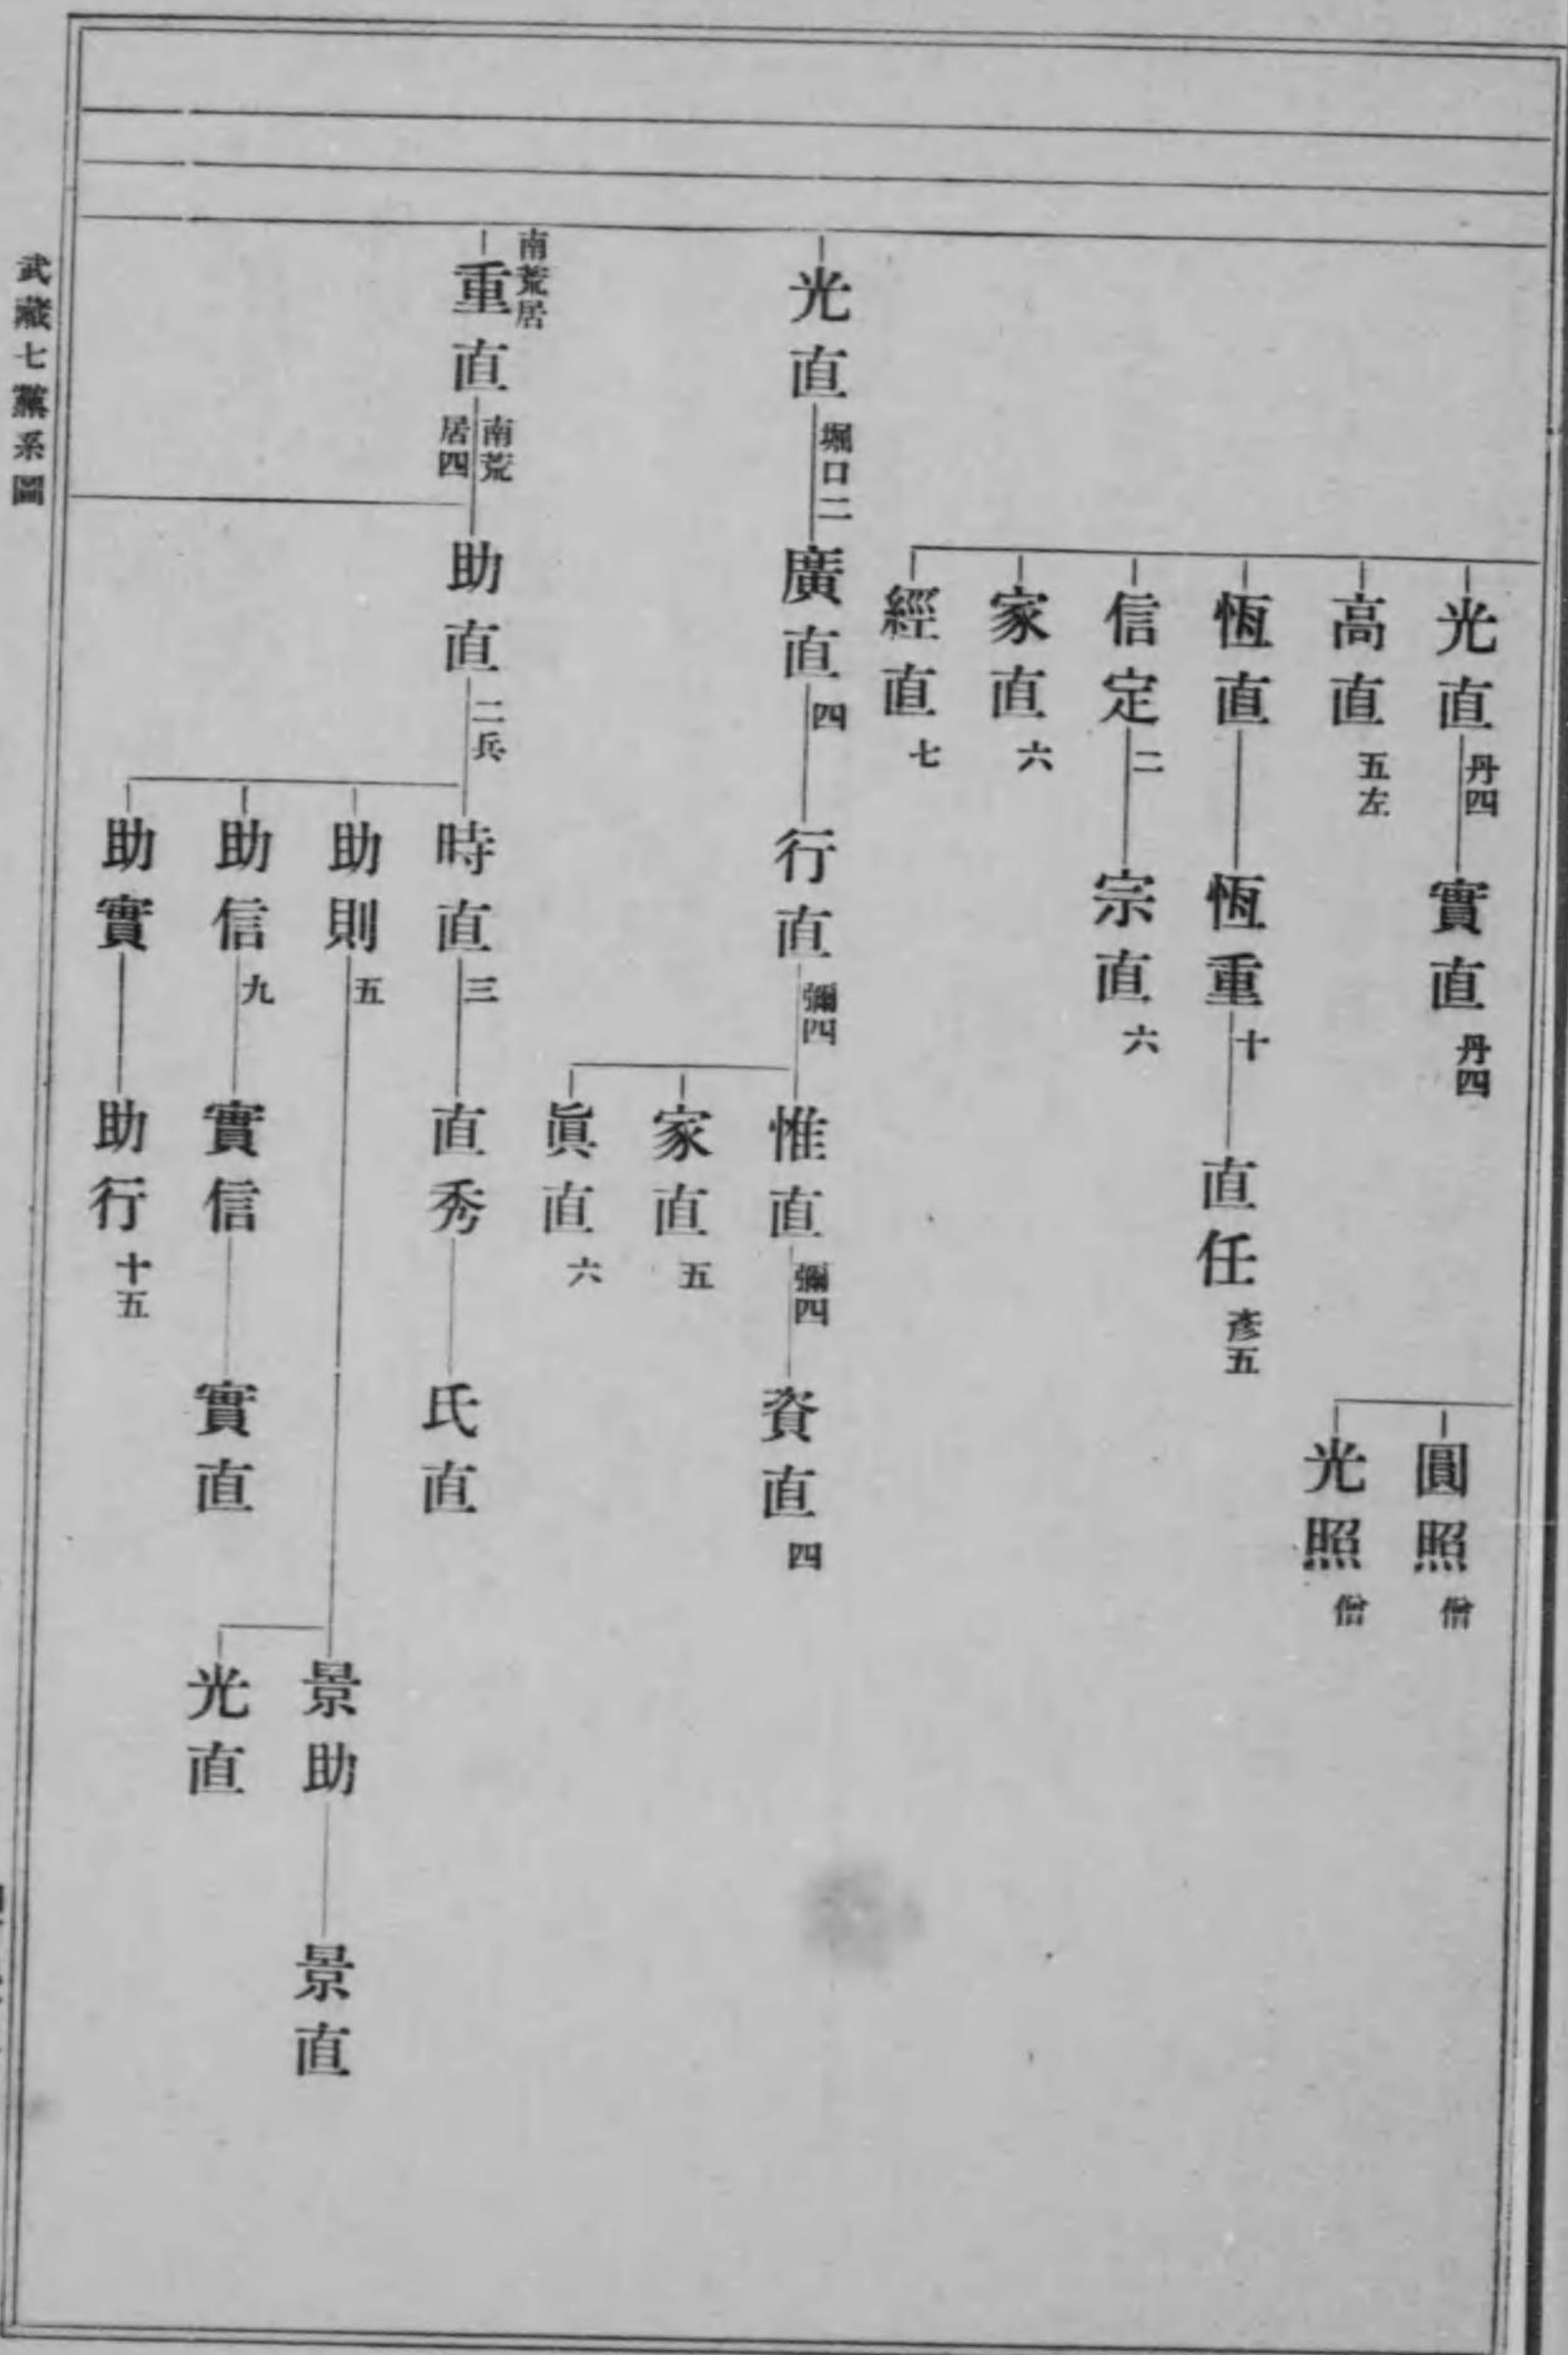 圓照 僧
光照 僧
光直 丹四
實直 丹四
高直 五左
恆直
恆重 十
直任 彥五
信定 二
宗直 六
家直 六
經直 七
光直 堀口二
廣直 四
行直 彌四
惟直 彌四
資直 四
家直 五
眞直 六
南荒居
重直 南荒居四
助直 二兵
時直 三
直秀
氏直
助則 五
景助
景直
光直
助信 九
實信
實直
助實
助行 十五
武藏七黨系圖